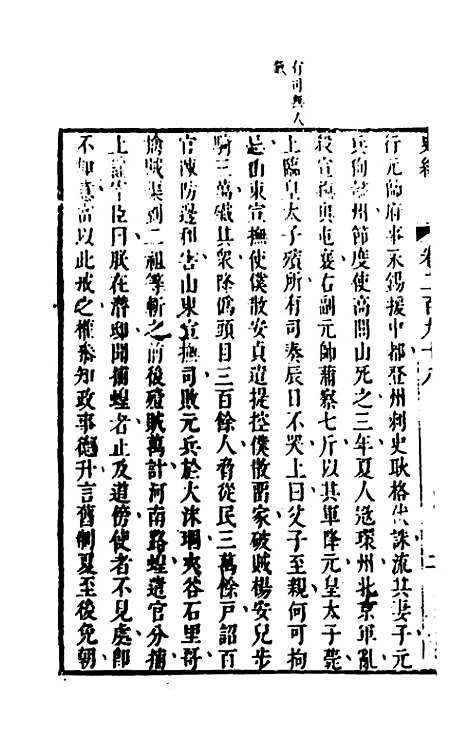 有司無人
史緯 卷二百九十八
行元帥府事永錫援中都登州刺史耿格伏誅流其妻子元
兵徇 州節度使高閏山死之三年夏人冦環州北京軍亂
殺宣撫奥屯襄右副元帥蒲察七斤以其軍降元皇太子薨
上臨皇太子殯所有司奏辰日不哭上曰父子至親何可拘
忌山東宣撫使僕散安貞遣提控僕散畱家破賊楊安兒步
騎三萬殲其衆降僞頭目三百餘人脅從民三萬餘戸詔百
官陳防邊利害山東宣撫司敗元兵於大沫堌夾谷石里哥
擒賊渠劉二祖等斬之前後殪賊萬計河南路蝗遣官分捕
上諭宰臣曰朕在潛邸聞捕蝗者止及道傍使者不見處卽
不加意當以此戒之權參知政事德升言舊制夏至後免朝